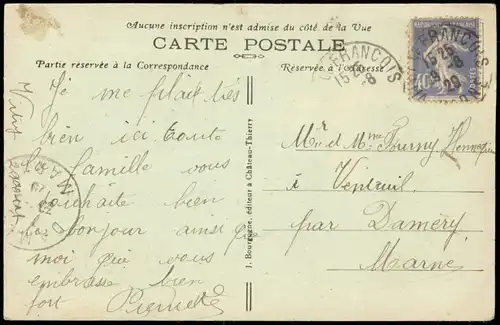 Aucune inscription n'est admise du côté de la Vue
CARTE POSTALE
Partie réservée à la Correspondance
Réservée à l'adresse
Je me plait très
bien ici toute
la famille vous
souhaite bien
le bonjour ainsi que
moi qui vous
embrasse bien
fort Pierrette
J. Bourgogne, éditeur à Château-Thierry
Mr et Mme Fourny Hennequin
à Venteuil
par Damery
Marne
FRANÇOIS
15 25
40